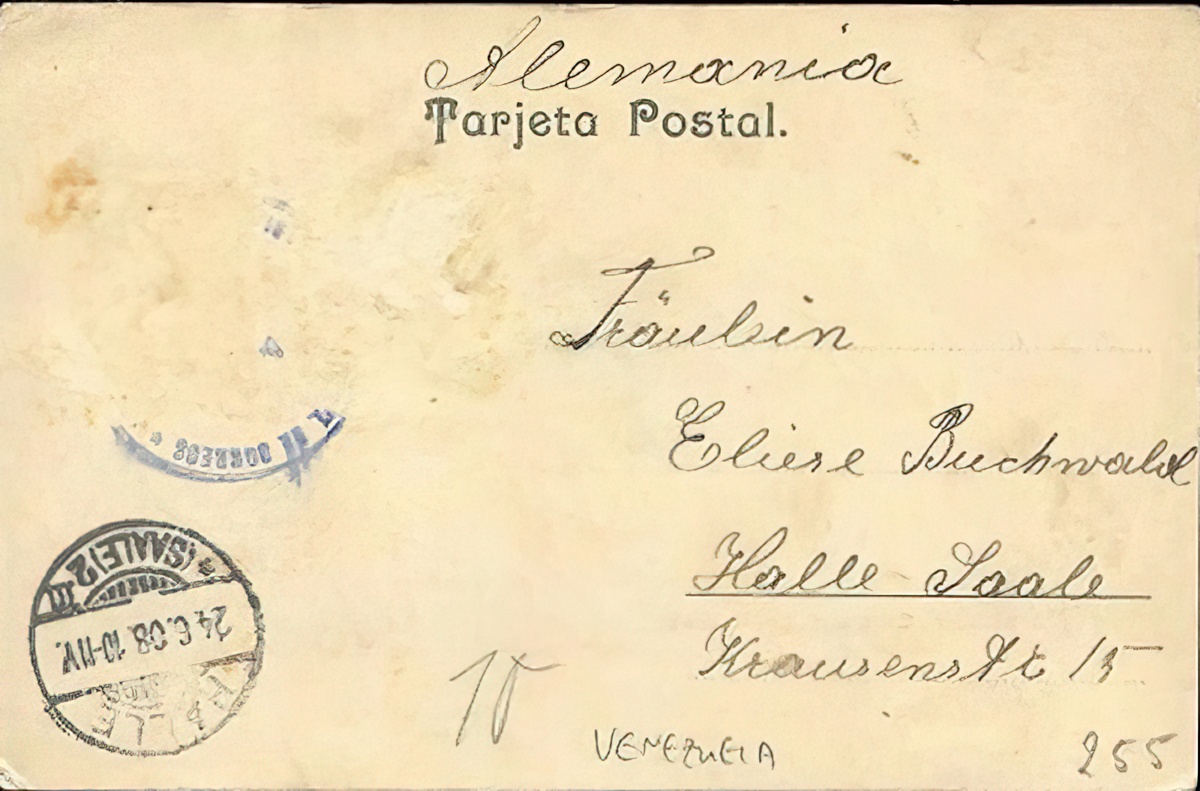 Alemania
Tarjeta Postal.
Fräulein
Eliese Buchwald
Halle Saale
Krausenstr 15
DE CORREOS
HALLE
*(SAALE)2 III
24.6.08.10-11V.
VENEZUELA
255